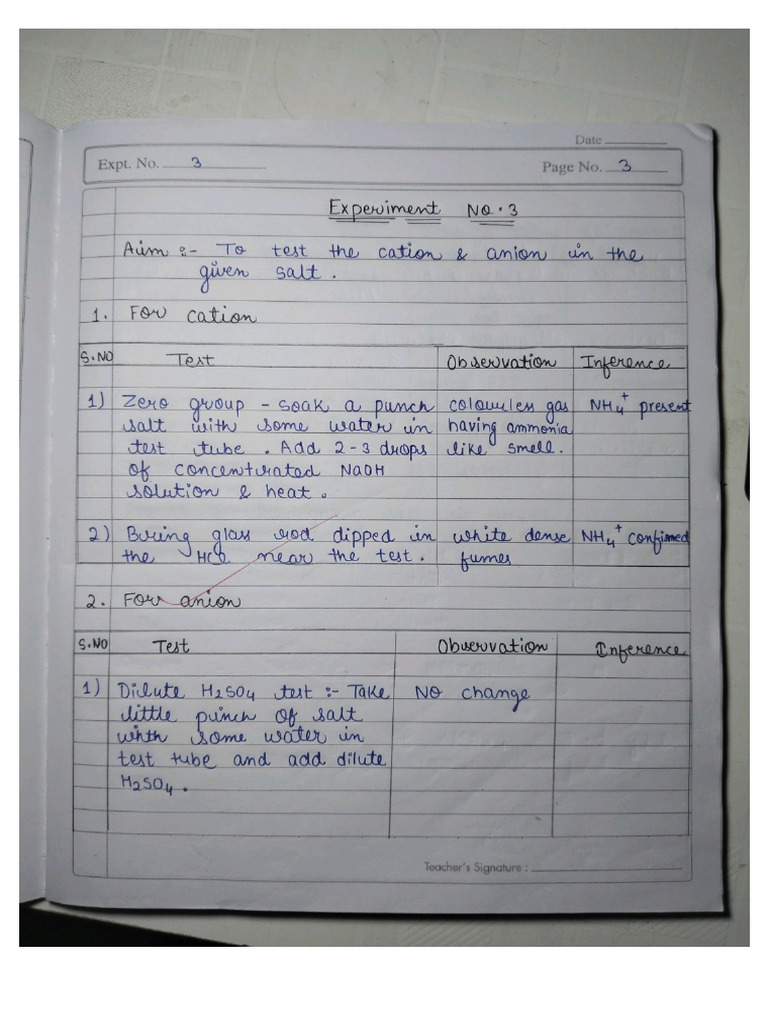 Date
Expt. No. 3
Page No. 3
Experiment No. 3
Aim :- To test the cation & anion in the
given salt.
1. For cation
S.NO Test Observation Inference
1) Zero group - soak a punch colourless gas NH4+ present
salt with some water in having ammonia
test tube. Add 2-3 drops like smell.
of concentrated NaOH
solution & heat.
2) Buring glass rod dipped in white dense NH4+ confirmed
the HCl near the test. fumes
2. For anion
S.NO Test Observation Inference
1) Dilute H2SO4 test :- Take No change
little punch of salt
with some water in
test tube and add dilute
H2SO4.
Teacher's Signature :